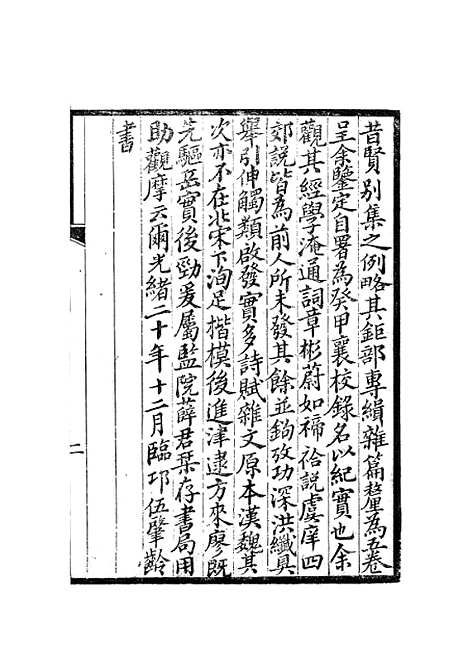 昔賢別集之例略其鉅部專緝雜篇釐為五卷
呈余鑒定自署為癸甲襄校錄名以紀實也余
觀其經學淹通詞章彬蔚如禘祫説虞庠四
郊説皆為前人所未發其餘並鉤攷功深洪纖具
舉引伸觸類啟發實多詩賦雜文原本漢魏其
次亦不在北宋下洵足楷模後進津逮方來廖既
先驅岳實後勁爰屬監院薛君槧存書局用
助觀摩云爾光緒二十年十二月臨邛伍肇齡
書
二